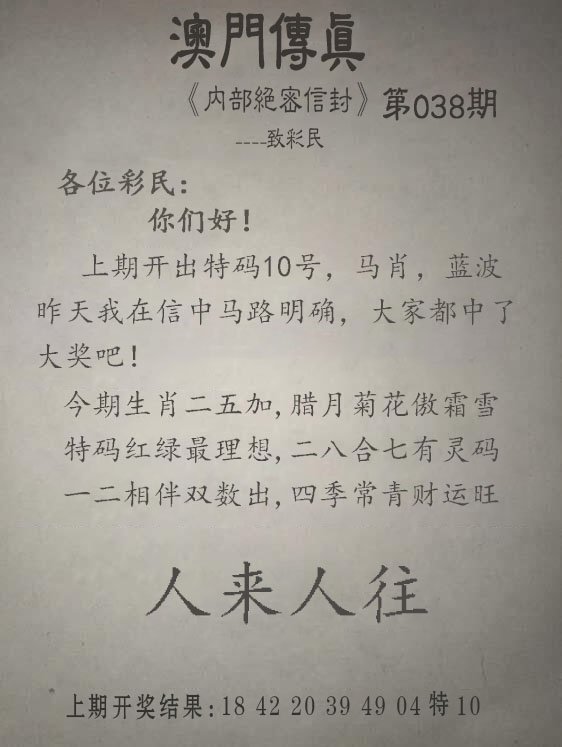 澳門傳真
《内部絕密信封》第038期
----致彩民
各位彩民：
你们好！
上期开出特码10号，马肖，蓝波
昨天我在信中马路明确，大家都中了
大奖吧！
今期生肖二五加,腊月菊花傲霜雪
特码红绿最理想,二八合七有灵码
一二相伴双数出,四季常青财运旺
人来人往
上期开奖结果:18 42 20 39 49 04特10